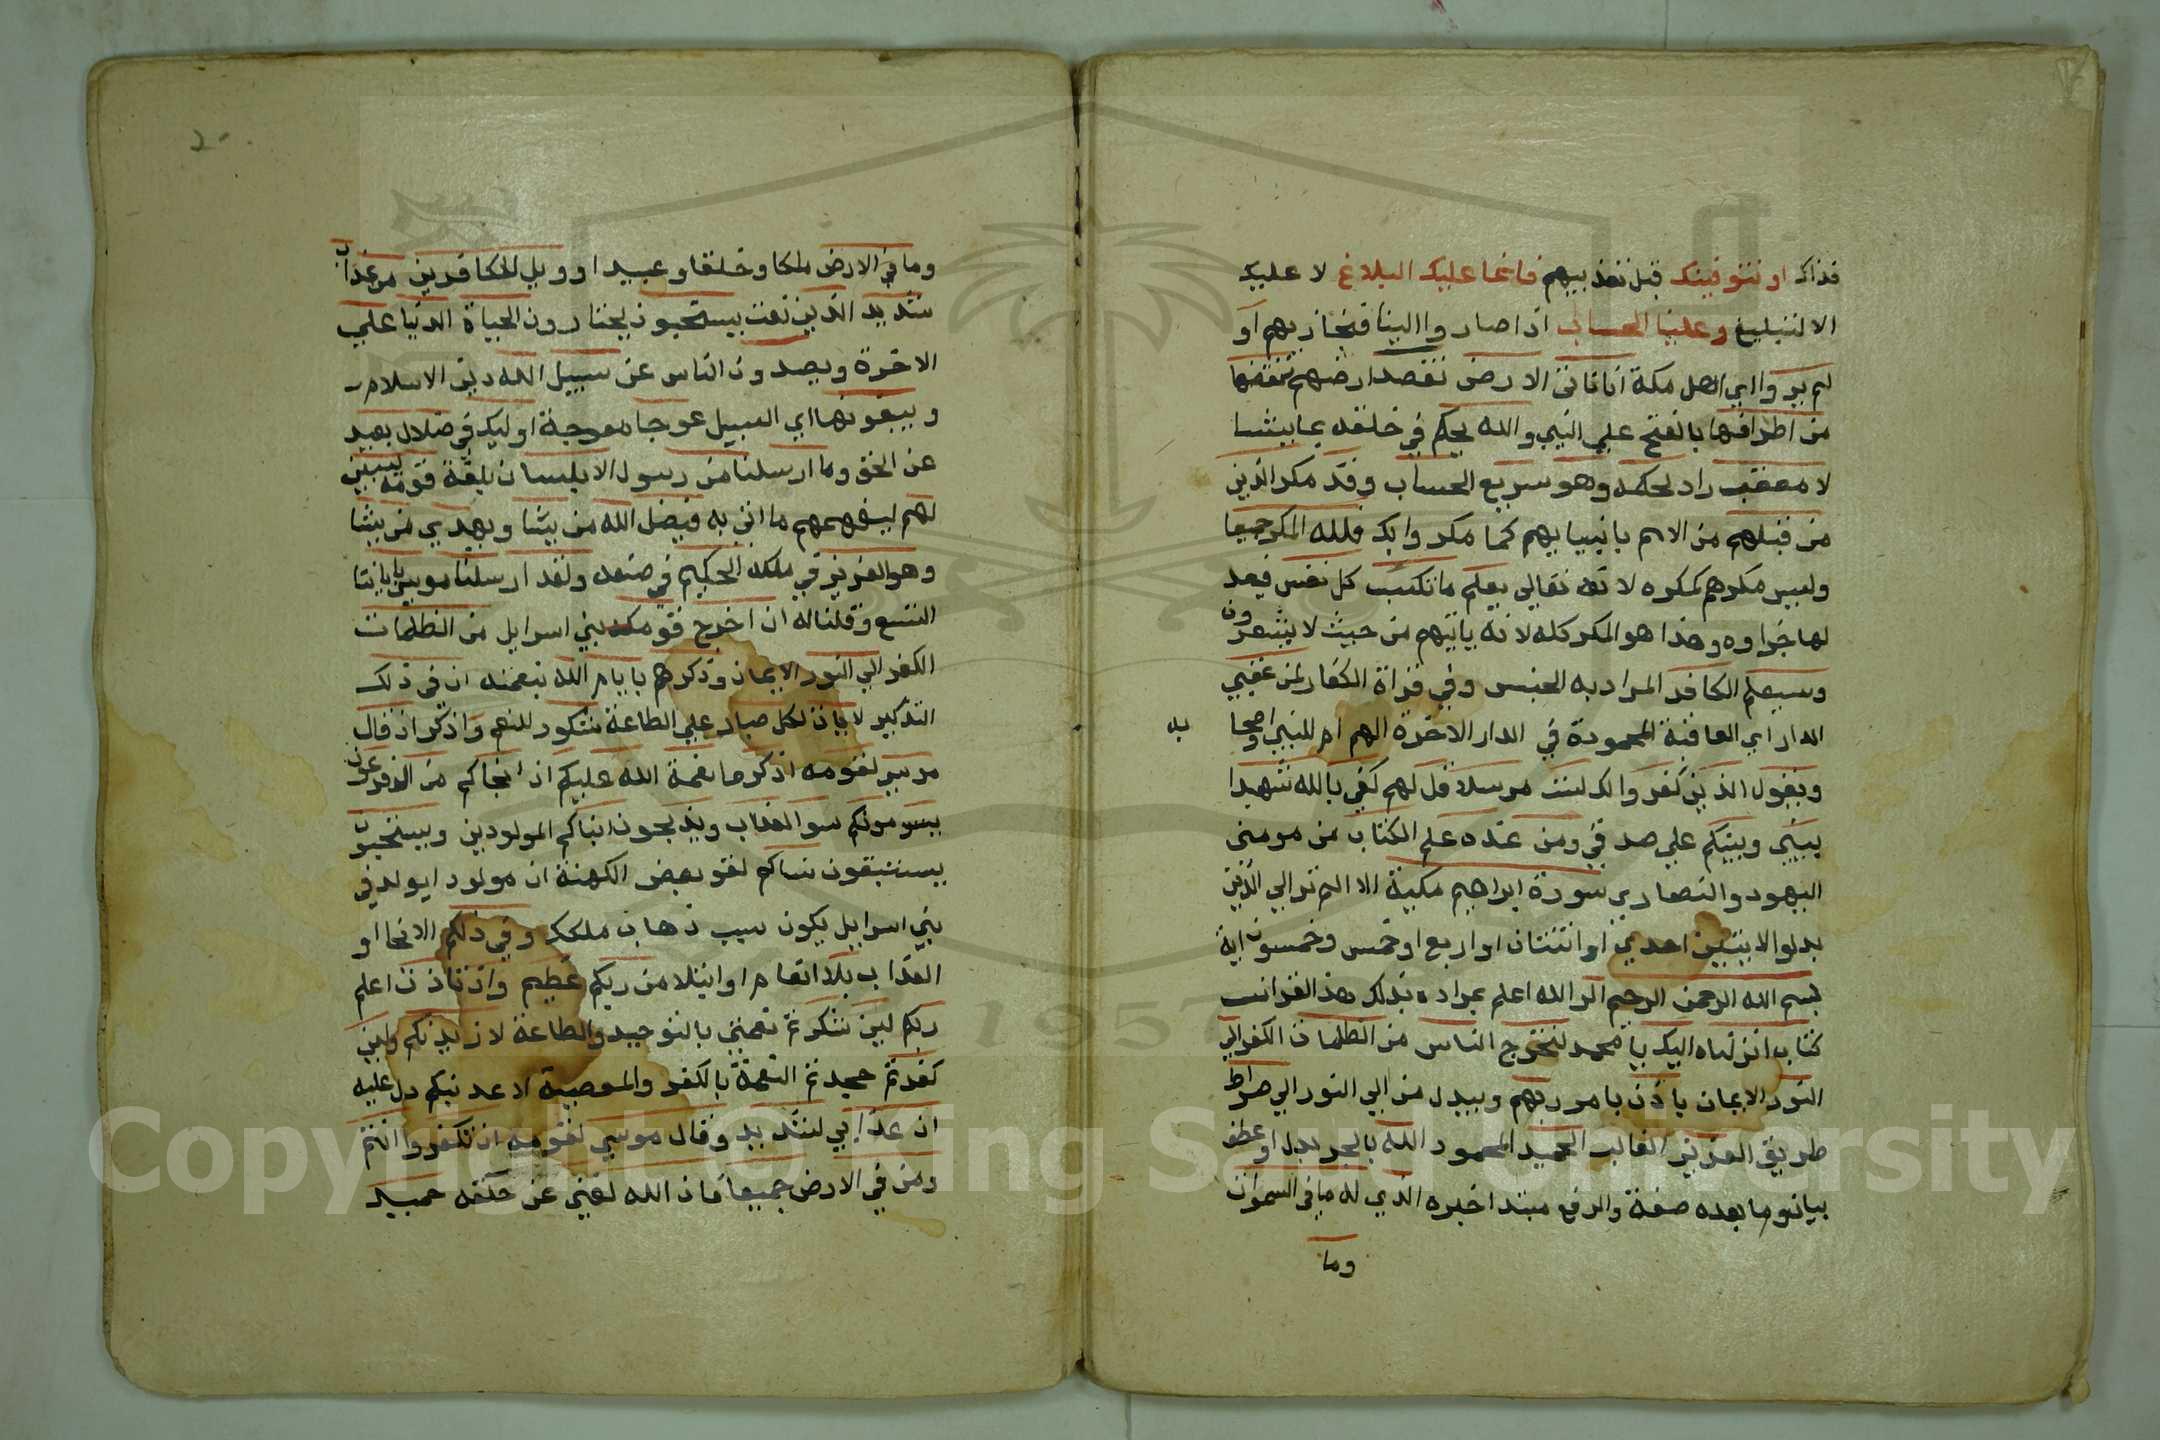 فذاك او نتوفينك قبل تعذيبهم فانما عليك البلاغ لا عليك
الا التبليغ وعلينا الحساب اذا صاروا الينا فنجازيهم او
لم يروا اي اهل مكة انا ناتي الارض نقصد ارضهم ننقصها
من اطرافها بالفتح علي النبي والله يحكم في خلقه بما يشا
لا معقب راد لحكمه وهو سريع الحساب وقد مكر الذين
من قبلهم من الامم بانبيايهم كما مكروا بك فلله المكر جميعا
وليس مكرهم كمكره لانه تعالي يعلم ما تكسب كل نفس فيعد
لها جزاوه وهذا هو المكر كله لانه ياتيهم من حيث لا يشعرون
وسيعلم الكافر المراد به الجنس وفي قراة الكفار لمن عقبي
الدار اي العاقبة المحمودة في الدار الاخرة الهم ام للنبي واصحا
به
ويقول الذين كفروا لك لست مرسلا قل لهم كفي بالله شهيدا
بيني وبينكم علي صدقي ومن عنده علم الكتاب من مومني
اليهود والنصاري سورة ابراهيم مكية الا الم تر الي الذين
بدلوا الايتين احدي او اثنتان او اربع او خمس وخمسون اية
بسم الله الرحمن الرحيم الر الله اعلم بمراده بذلك هذا القران
كتاب انزلناه اليك يا محمد لتخرج الناس من الظلمات الكفر الي
النور الايمان باذن بامر ربهم ويبدل من الي النور الي صراط
طريق العزيز الغالب الحميد المحمود الله بالجر بدل او عطف
بيان وما بعده صفة والرفع مبتدا خبره الذي له ما في السموات
وما
٢٠
وما في الارض ملكا وخلقا وعبيدا وويل للكافرين من عذاب
شديد الذين نعت يستحبون يختارون الحياة الدنيا علي
الاخرة ويصدون الناس عن سبيل الله دين الاسلام
ويبغونها اي السبيل عوجا معوجة اوليك في ضلال بعيد
عن الحق وما ارسلنا من رسول الا بلسان بلغة قومه ليبين
لهم ليفهمهم ما اتي به فيضل الله من يشا ويهدي من يشا
وهو العزيز في ملكه الحكيم في صنعه ولقد ارسلنا موسي باياتنا
التسع وقلنا له ان اخرج قومك بني اسرايل من الظلمات
الكفر الي النور الايمان وذكرهم بايام الله بنعمه ان في ذلك
التذكير لايات لكل صبار علي الطاعة شكور للنعم واذكر اذ قال
موسي لقومه اذكروا نعمة الله عليكم اذ انجاكم من ال فرعون
يسومونكم سو العذاب ويذبحون ابناكم المولودين ويستحيون
يستبقون نساكم لقول بعض الكهنة ان مولودا يولد في
بني اسرايل يكون سبب ذهاب ملكك وفي ذلكم الانجا او
العذاب بلا انعام او ابتلا من ربكم عظيم واذ تاذن اعلم
ربكم لين شكرتم نعمتي بالتوحيد والطاعة لازيدنكم ولين
كفرتم جحدتم النعمة بالكفر والمعصية لاعذبنكم دل عليه
ان عذابي لشديد وقال موسي لقومه ان تكفروا انتم
ومن في الارض جميعا فان الله لغني عن خلقه حميد
1957
Copyright © King Saud University